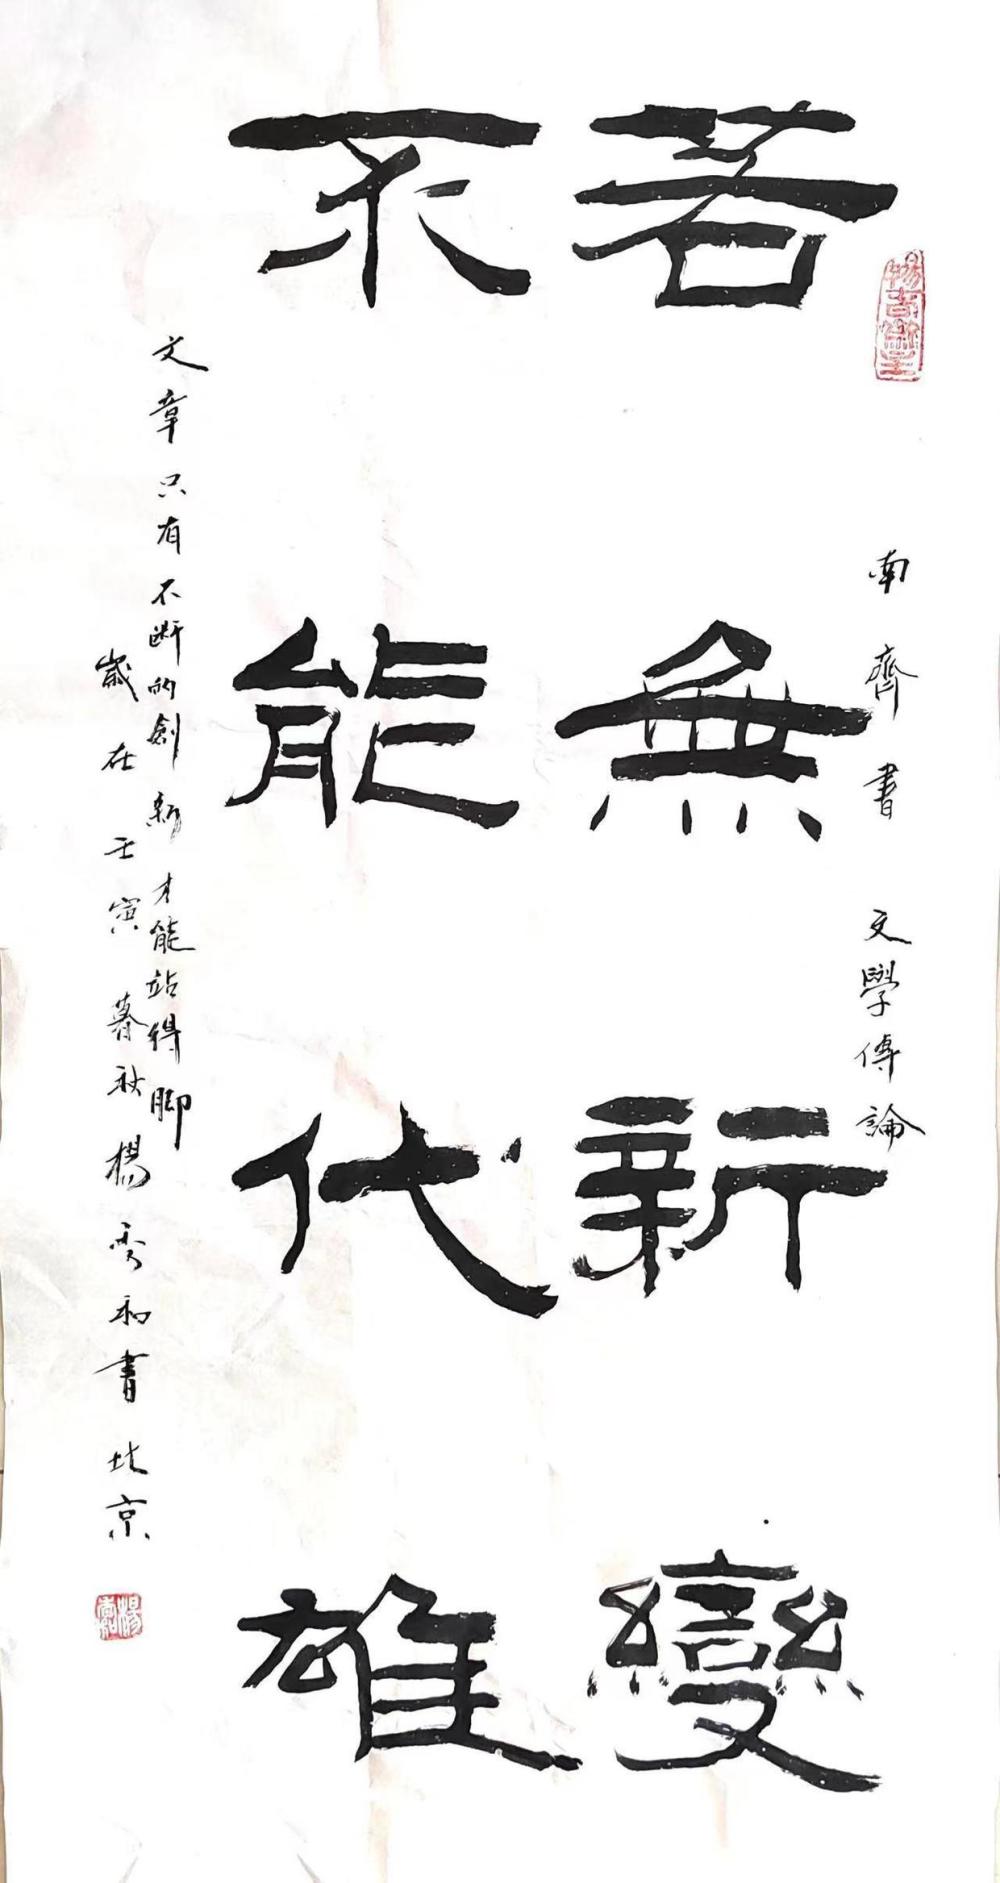 南齊書 文學傳論
若無新變
不能代雄
文章只有不断的創新才能站得脚
歲在壬寅暮秋楊秀和書北京